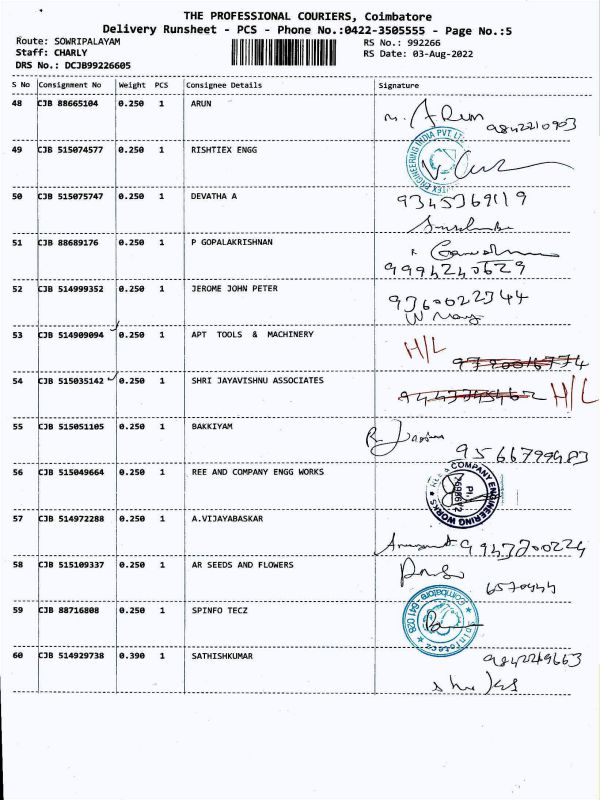 THE PROFESSIONAL COURIERS, Coimbatore
Delivery Runsheet - PCS - Phone No.:0422-3505555 - Page No.:5
Route: SOWRIPALAYAM
RS No.: 992266
Staff: CHARLY
RS Date: 03-Aug-2022
DRS No.: DCJB99226605
S No Consignment No Weight PCS Consignee Details Signature
48 CJB 88665104 0.250 1 ARUN
M. Arun 9842210903
49 CJB 515074577 0.250 1 RISHTIEX ENGG
ENGINEERING INDIA PVT. LTD
50 CJB 515075747 0.250 1 DEVATHA A 9345369119
51 CJB 88689176 0.250 1 P GOPALAKRISHNAN
9994240629
52 CJB 514999352 0.250 1 JEROME JOHN PETER 9360022344
53 CJB 514909094 0.250 1 APT TOOLS & MACHINERY H/L
54 CJB 515035142 0.250 1 SHRI JAYAVISHNU ASSOCIATES H/L
55 CJB 515051105 0.250 1 BAKKIYAM
9566799483
56 CJB 515049664 0.250 1 REE AND COMPANY ENGG WORKS
COMPANY ENGINEERING WORKS
57 CJB 514972288 0.250 1 A.VIJAYABASKAR
58 CJB 515109337 0.250 1 AR SEEDS AND FLOWERS
6570444
59 CJB 88716808 0.250 1 SPINFO TECZ
Spinfotecz Coimbatore-641 028
60 CJB 514929738 0.390 1 SATHISHKUMAR 9842249663